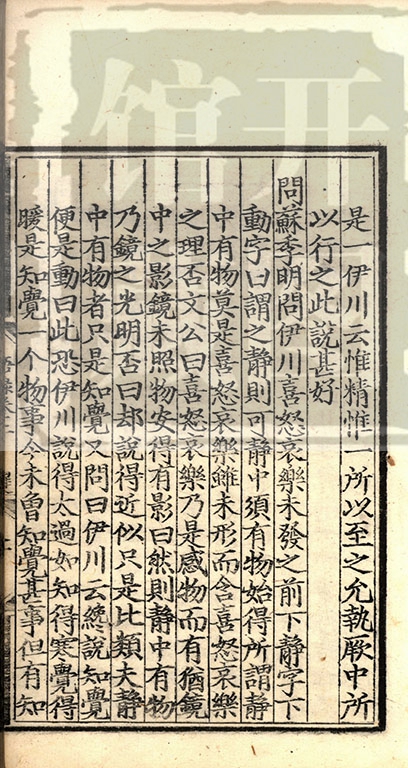 是一伊川云惟精惟一所以至之允執厥中所
以行之此說甚好
問蘇季明問伊川喜怒哀樂未發之前下静字下
動字曰謂之静則可静中須有物始得所謂静
中有物莫是喜怒哀樂雖未形而含喜怒哀樂
之理否文公曰喜怒哀樂乃是感物而有猶鏡
中之影鏡未照物安得有影曰然則静中有物
乃鏡之光明否曰却說得近似只是比類夫静
中有物者只是知覺又問曰伊川云纔說知覺
便是動曰此恐伊川說得太過如知得寒覺得
暖是知覺一个物事今未曾知覺甚事但有知